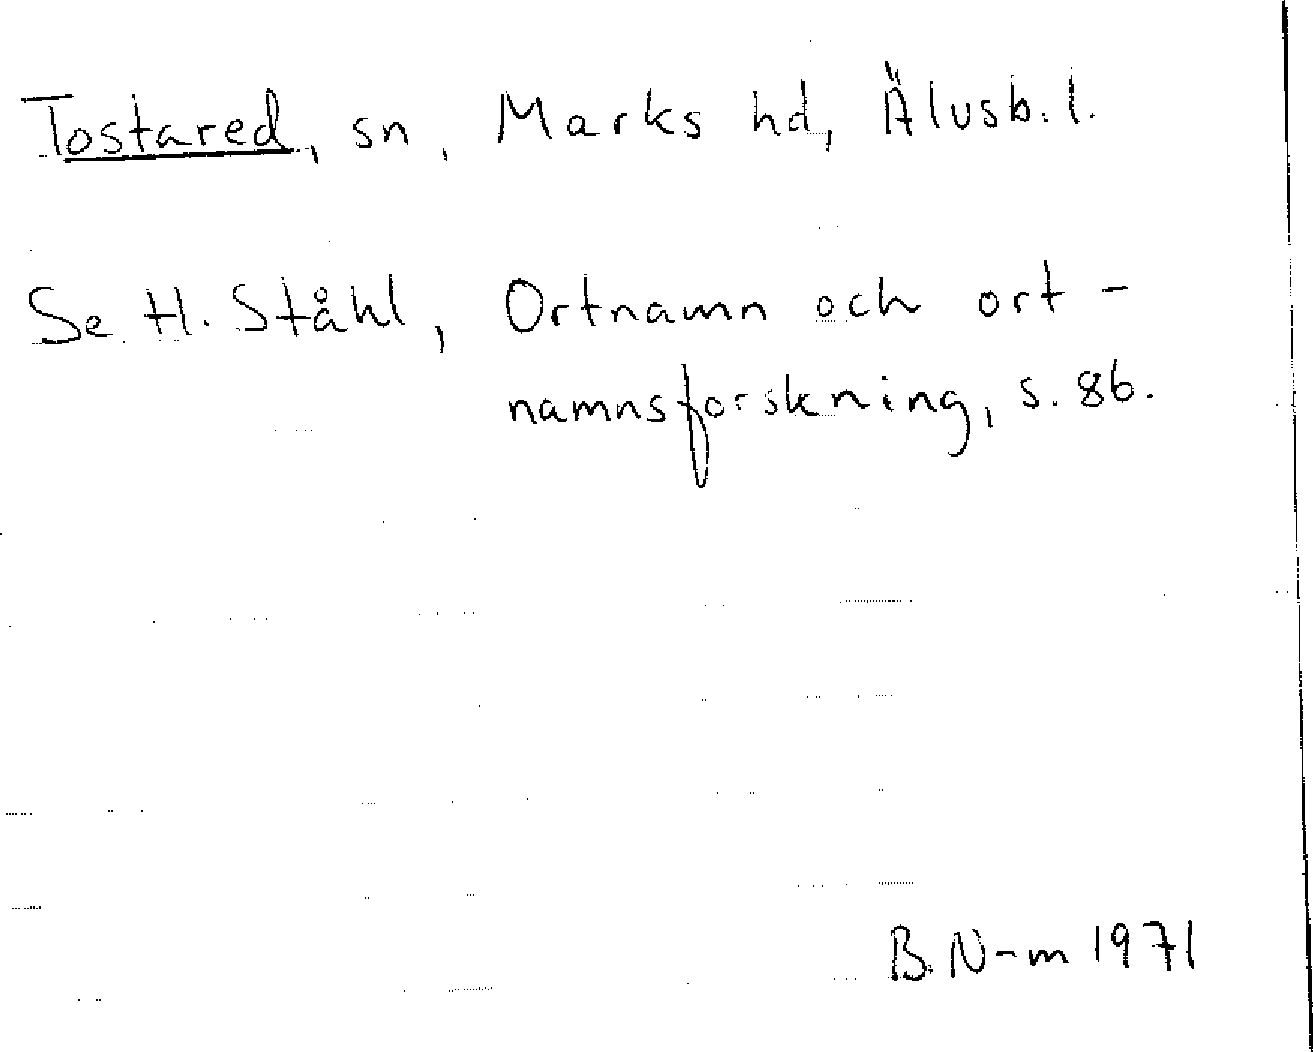 Tostared, sn, Marks hd, Älvsb.l.
Se H. Ståhl, Ortnamn och ort-
namnsforskning, s. 86.
B. N-m 1971